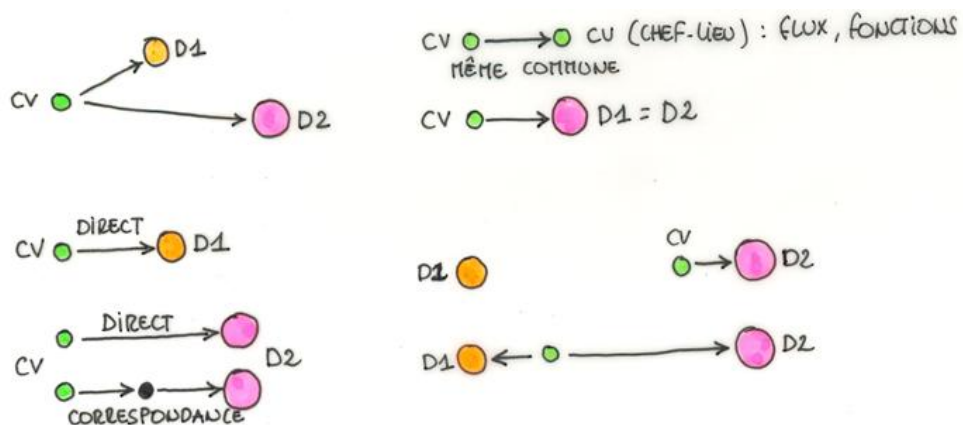 D1
CV
D2
CV CV (CHEF-LiEU) : FLUX, FONCTIONS
MÊME COMMUNE
CV D1 = D2
DiRECT
CV D1
DiRECT
CV D2
CORRESPONDANCE
CV
D1 D2
D1 D2